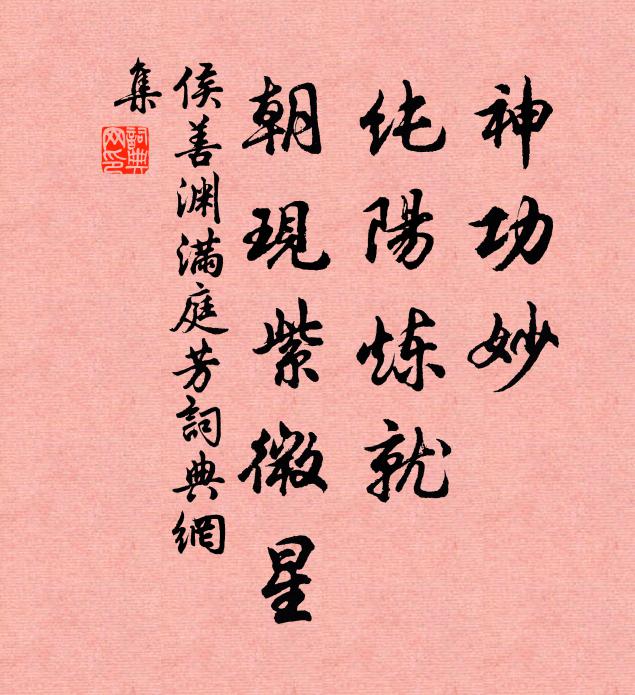 神功妙
纯陽炼就
朝現紫微星
侯善渊满庭芳詞典網
集
詞典网印